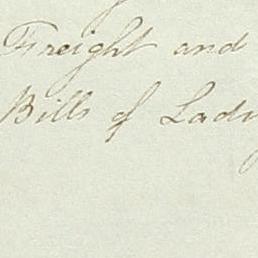 Freight and
Bills of Ladi